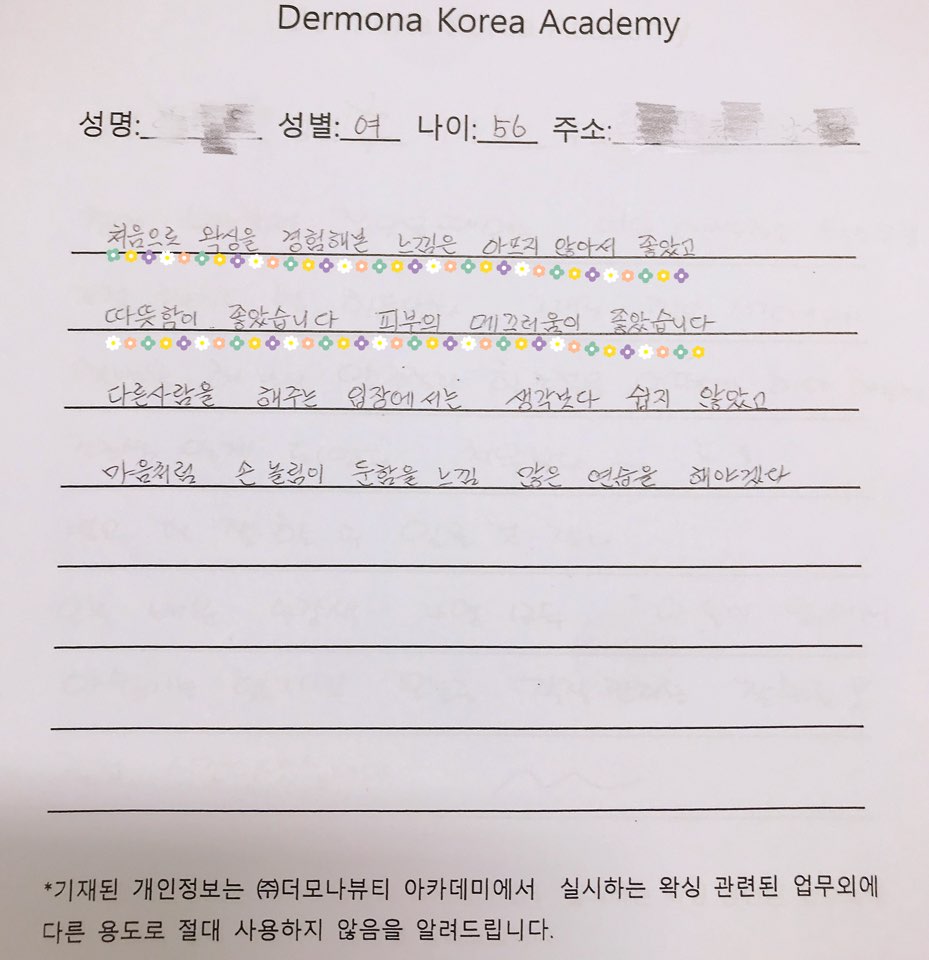 Dermona Korea Academy
성명: 성별: 여 나이: 56 주소:
처음으로 왁싱을 경험해본 느낌은 아프지 않아서 좋았고
따뜻함이. 좋았습니다 피부의 메끄러움이 좋았습니다
다른사람을 해주는 입장에서는 생각보다 쉽지 않았고
마음처럼 손놀림이 둔함을 느낌 많은 연습을 해야겠다
*기재된 개인정보는 ㈜더모나뷰티 아카데미에서 실시하는 왁싱 관련된 업무외에
다른 용도로 절대 사용하지 않음을 알려드립니다.